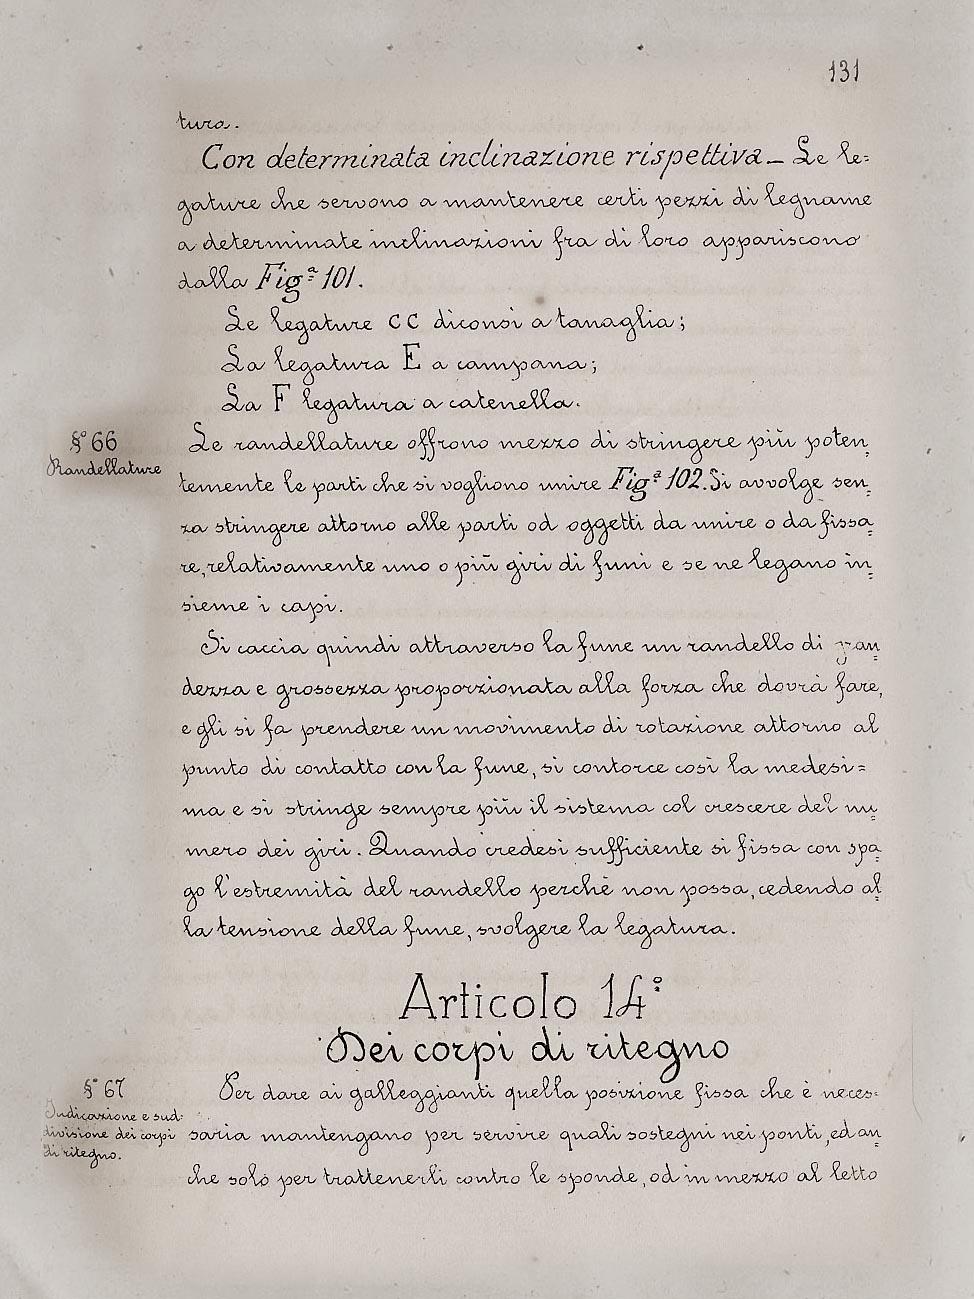 131
tura.
Con determinata inclinazione rispettiva_ Le le=
gature che servono a mantenere certi pezzi di legname
a determinate inclinazioni fra di loro appariscono
dalla Figª 101.
Le legature CC diconsi a tanaglia;
La legatura E a campana;
La F legatura a catenella.
§° 66
Randellature
Le randellature offrono mezzo di stringere più poten=
temente le parti che si vogliono unire Figª 102. Si avvolge sen=
za stringere attorno alle parti od oggetti da unire o da fissa=
re, relativamente uno o più giri di funi e se ne legano in=
sieme i capi.
Si caccia quindi attraverso la fune un randello di gran=
dezza e grossezza proporzionata alla forza che dovrà fare,
e gli si fa prendere un movimento di rotazione attorno al
punto di contatto con la fune, si contorce così la medesi=
ma e si stringe sempre più il sistema col crescere del nu=
mero dei giri. Quando credesi sufficiente si fissa con spa=
go l'estremità del randello perchè non possa, cedendo al=
la tensione della fune, svolgere la legatura.
Articolo 14°
Dei corpi di ritegno
§° 67
Indicazione e sud=
divisione dei corpi
di ritegno.
Per dare ai galleggianti quella posizione fissa che è neces=
saria mantengano per servire quali sostegni nei ponti, ed an=
che solo per trattenerli contro le sponde, od in mezzo al letto